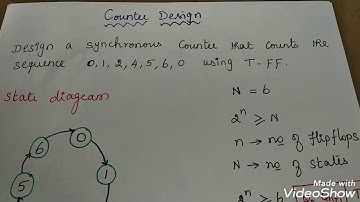 Counter Design
Design a synchronous Counter that counts the
sequence 0, 1, 2, 4, 5, 6, 0 using T-FF.
State diagram
N = 6
2ⁿ ≥ N
n → no of flipflops
N → no of states
2ⁿ ≥ 6
0
6
1
5
Made with
VideoShow